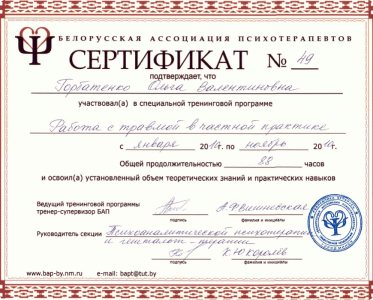 БЕЛОРУССКАЯ АССОЦИАЦИЯ ПСИХОТЕРАПЕВТОВ
СЕРТИФИКАТ № 49
подтверждает, что
Горбатенко Ольга Валентиновна
участвовал(а) в специальной тренинговой программе
Работа с травмой в частной практике
с января 2014г по ноябрь 2014г.
Общей продолжительностью 88 часов
и освоил(а) установленный объем теоретических знаний и практических навыков
Ведущий тренинговой программы
тренер-супервизор БАП
подпись фамилия и инициалы
Руководитель секции Психоаналитической психотерапии
и гештальт-терапии
К.Ю.Королёв
подпись фамилия и инициалы
www.bap-by.nm.ru e-mail: bapt@tut.by